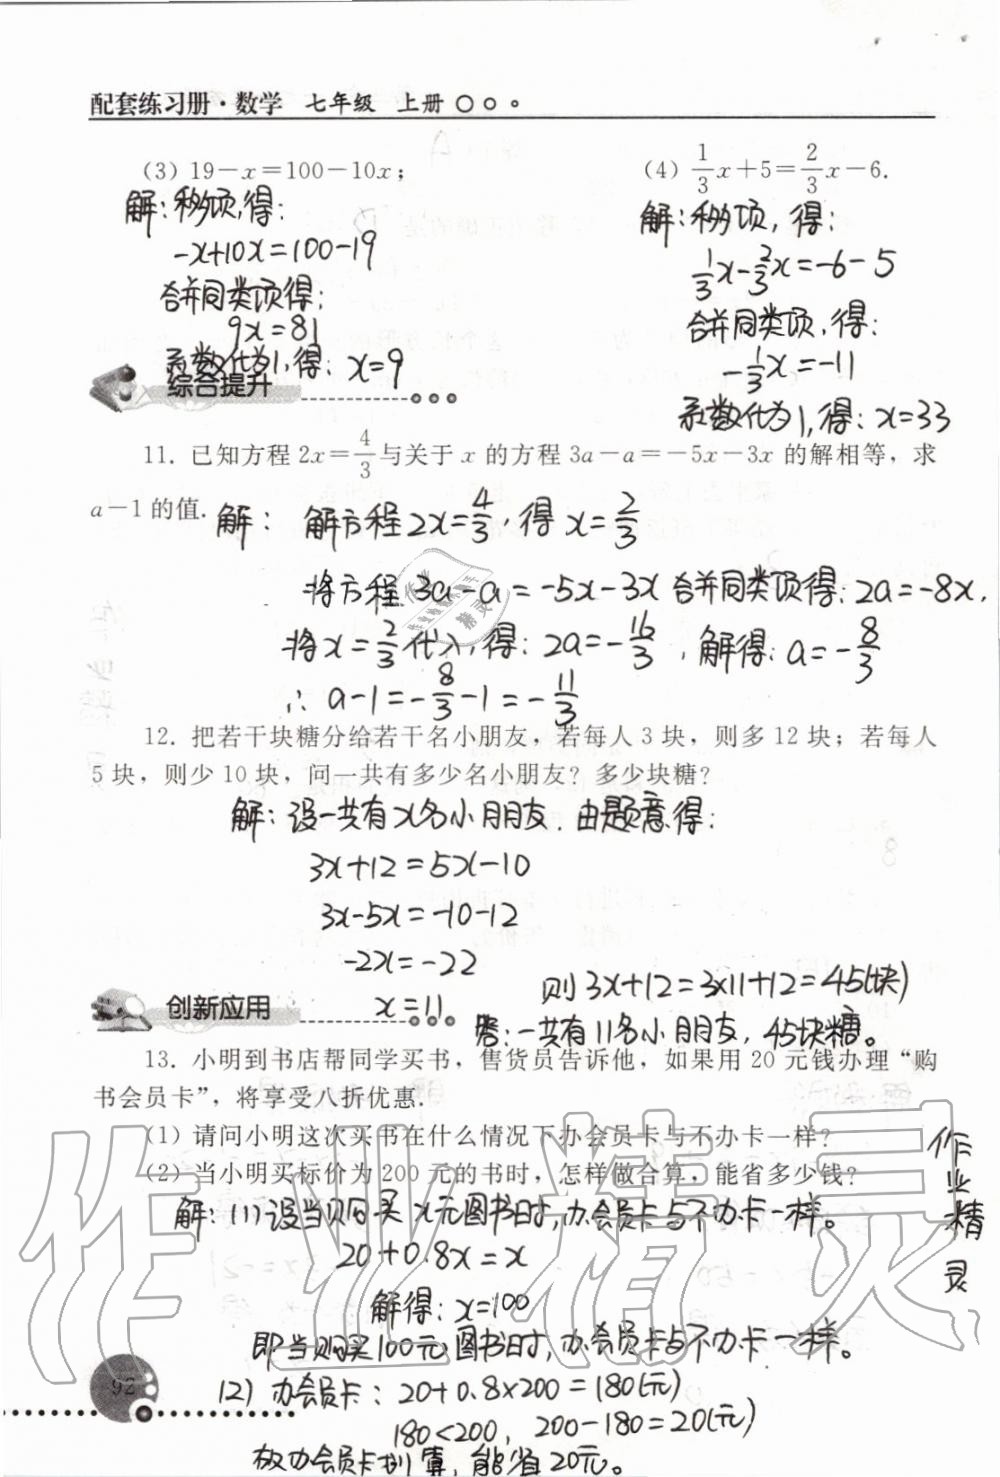 配套练习册·数学 七年级 上册
(3) 19－x＝100－10x；
(4) 1/3x＋5＝2/3x－6.
解：移项，得：
-x+10x=100-19
合并同类项得：
9x=81
系数化为1，得：x=9
解：移项，得：
1/3x-2/3x=-6-5
合并同类项，得：
-1/3x=-11
系数化为1，得：x=33
综合提升
11. 已知方程 2x＝4/3与关于 x 的方程 3a－a＝－5x－3x 的解相等，求
a－1 的值.
解： 解方程2x=4/3，得 x=2/3
将方程3a-a=-5x-3x合并同类项得：2a=-8x，
将x=2/3代入，得：2a=-16/3，解得：a=-8/3
∴ a-1=-8/3-1=-11/3
12. 把若干块糖分给若干名小朋友，若每人 3 块，则多 12 块；若每人
5 块，则少 10 块，问一共有多少名小朋友？多少块糖？
解：设一共有x名小朋友．由题意得：
3x+12=5x-10
3x-5x=-10-12
-2x=-22
x=11
则3x+12=3×11+12=45(块)
答：一共有11名小朋友，45块糖。
创新应用
13. 小明到书店帮同学买书，售货员告诉他，如果用 20 元钱办理“购
书会员卡”，将享受八折优惠.
(1) 请问小明这次买书在什么情况下办会员卡与不办卡一样？
(2) 当小明买标价为 200 元的书时，怎样做合算，能省多少钱？
解：(1)设当购买x元图书时，办会员卡与不办卡一样。
20+0.8x=x
解得：x=100
即当购买100元图书时，办会员卡与不办卡一样。
(2) 办会员卡：20+0.8×200=180(元)
180<200，200-180=20(元)
故办会员卡划算，能省20元。
作业精灵
作业精灵
92